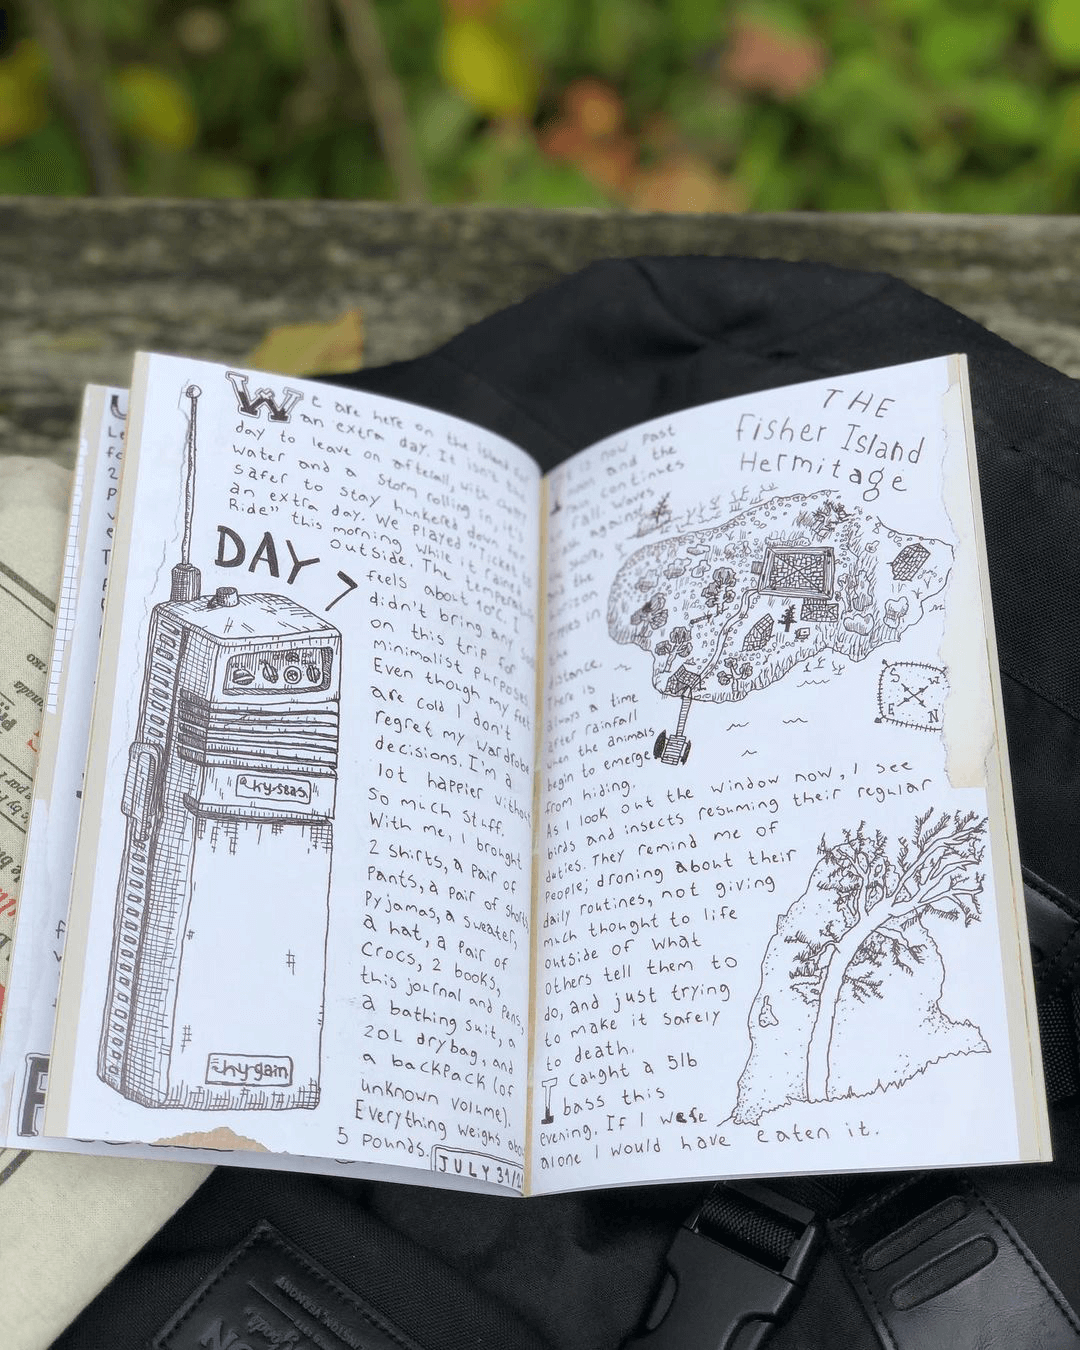 We are here on the island for
an extra day. It isn't the
day to leave on afterall, with choppy
water and a storm rolling in, it's
safer to stay hunkered down
an extra day. We played "Ticket to
Ride" this morning while it rained
outside. The temperature
feels about 10°C. I
didn't bring any
on this trip for
minimalist purposes.
Even though my feet
are cold I don't
regret my wardrobe
decisions. I'm a
lot happier without
so much stuff.
With me, I brought
2 shirts, a pair of
pants, a pair of shorts,
pyjamas, a sweater,
a hat, a pair of
crocs, 2 books,
this journal and pens,
a bathing suit, a
20L drybag, and
a backpack (of
unknown volume).
Everything weighs about
5 pounds.
JULY 31/2
DAY 7
hy-seas
hy-gain
THE
Fisher Island
Hermitage
S W
E N
is now past
noon and the
rain continues
to fall. Waves
against
the shore,
and the
horizon
ripples in
the
distance.
There is
always a time
after rainfall
when the animals
begin to emerge
from hiding.
As I look out the window now, I see
birds and insects resuming their regular
duties. They remind me of
people; droning about their
daily routines, not giving
much thought to life
outside of what
others tell them to
do, and just trying
to make it safely
to death.
I caught a 5lb
bass this
evening. If I were
alone I would have eaten it.